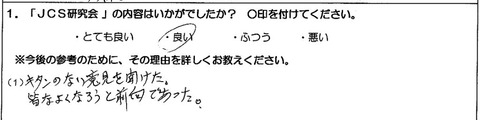 1. 「JCS研究会」の内容はいかがでしたか? ○印を付けてください。
・とても良い ・良い ・ふつう ・悪い
※今後の参考のために、その理由を詳しくお教えください。
(1)キタンのない意見を聞けた。
皆なよくなろうと前向であった。